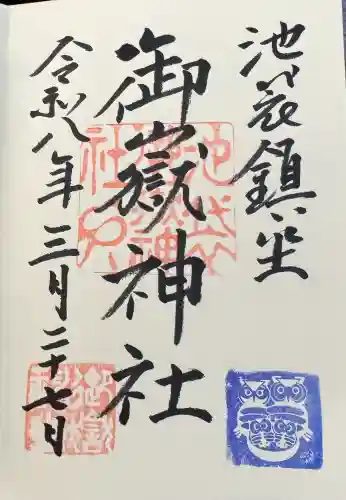 池袋鎮座
御嶽神社
令和八年三月二十七日